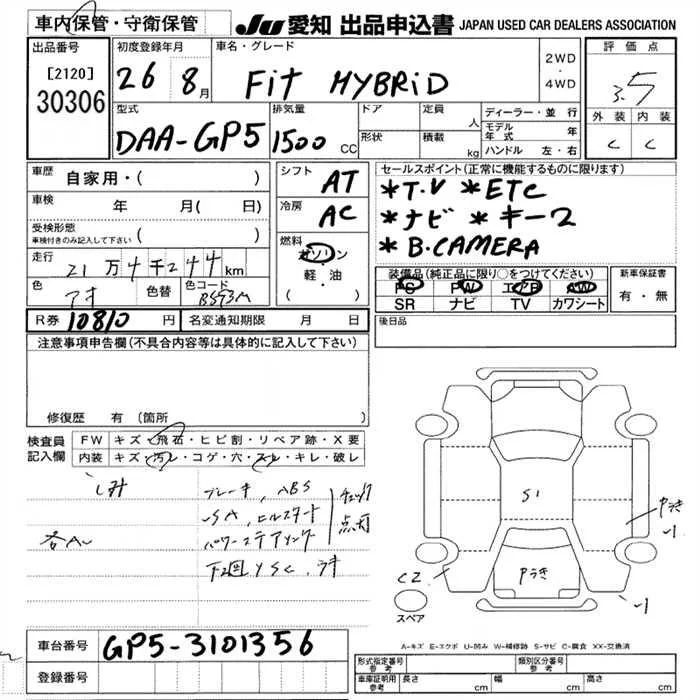 車内保管・守衛保管
JU 愛知 出品申込書 JAPAN USED CAR DEALERS ASSOCIATION
出品番号
[2120]
30306
初度登録年月
26 8月
車名・グレード
Fit HYBRiD
2WD
・
4WD
評価点
3.5
外装 内装
C C
型式
DAA-GP5
排気量
1500 CC
ドア
形状
定員 人
積載 kg
ディーラー・並行
モデル年式 年
ハンドル 左・右
車歴 自家用・( )
車検 年 月(日)
受検形態
車検付きのみ記入して下さい ( )
走行 21万4千244km
色 アオ 色替 色コード B593M
シフト AT
冷房 AC
燃料
ガソリン
・
軽・油
( )
セールスポイント(正常に機能するものに限ります)
*T.V *ETC
*ナビ *キー2
*B.CAMERA
装備品(純正品に限り○をつけてください)
PS PW エアB AW
SR ナビ TV カワシート
新車保証書
有・無
R券 10810円 名変通知期限 月 日
後日品
注意事項申告欄(不具合内容等は具体的に記入して下さい)
修復歴 有(箇所
検査員記入欄
FW キズ・飛石・ヒビ割・リペア跡・X要
内装 キズ・汚レ・コゲ・穴・スレ・キレ・破レ
シミ
各A
ブレーキ、ABS
VSA、ヒルスタート
パワーステアリング
チェック
点灯
下回りSC、
S1
Pうき
Pうき
C2
スペア
A-キズ E-エクボ U-凹み W-補修跡 S-サビ C-腐食 XX-交換済
車台番号 GP5-3101356
登録番号
形式指定番号 参考
類別区分番号 参考
車庫証明用 参考
長さ cm 幅 cm 高さ cm